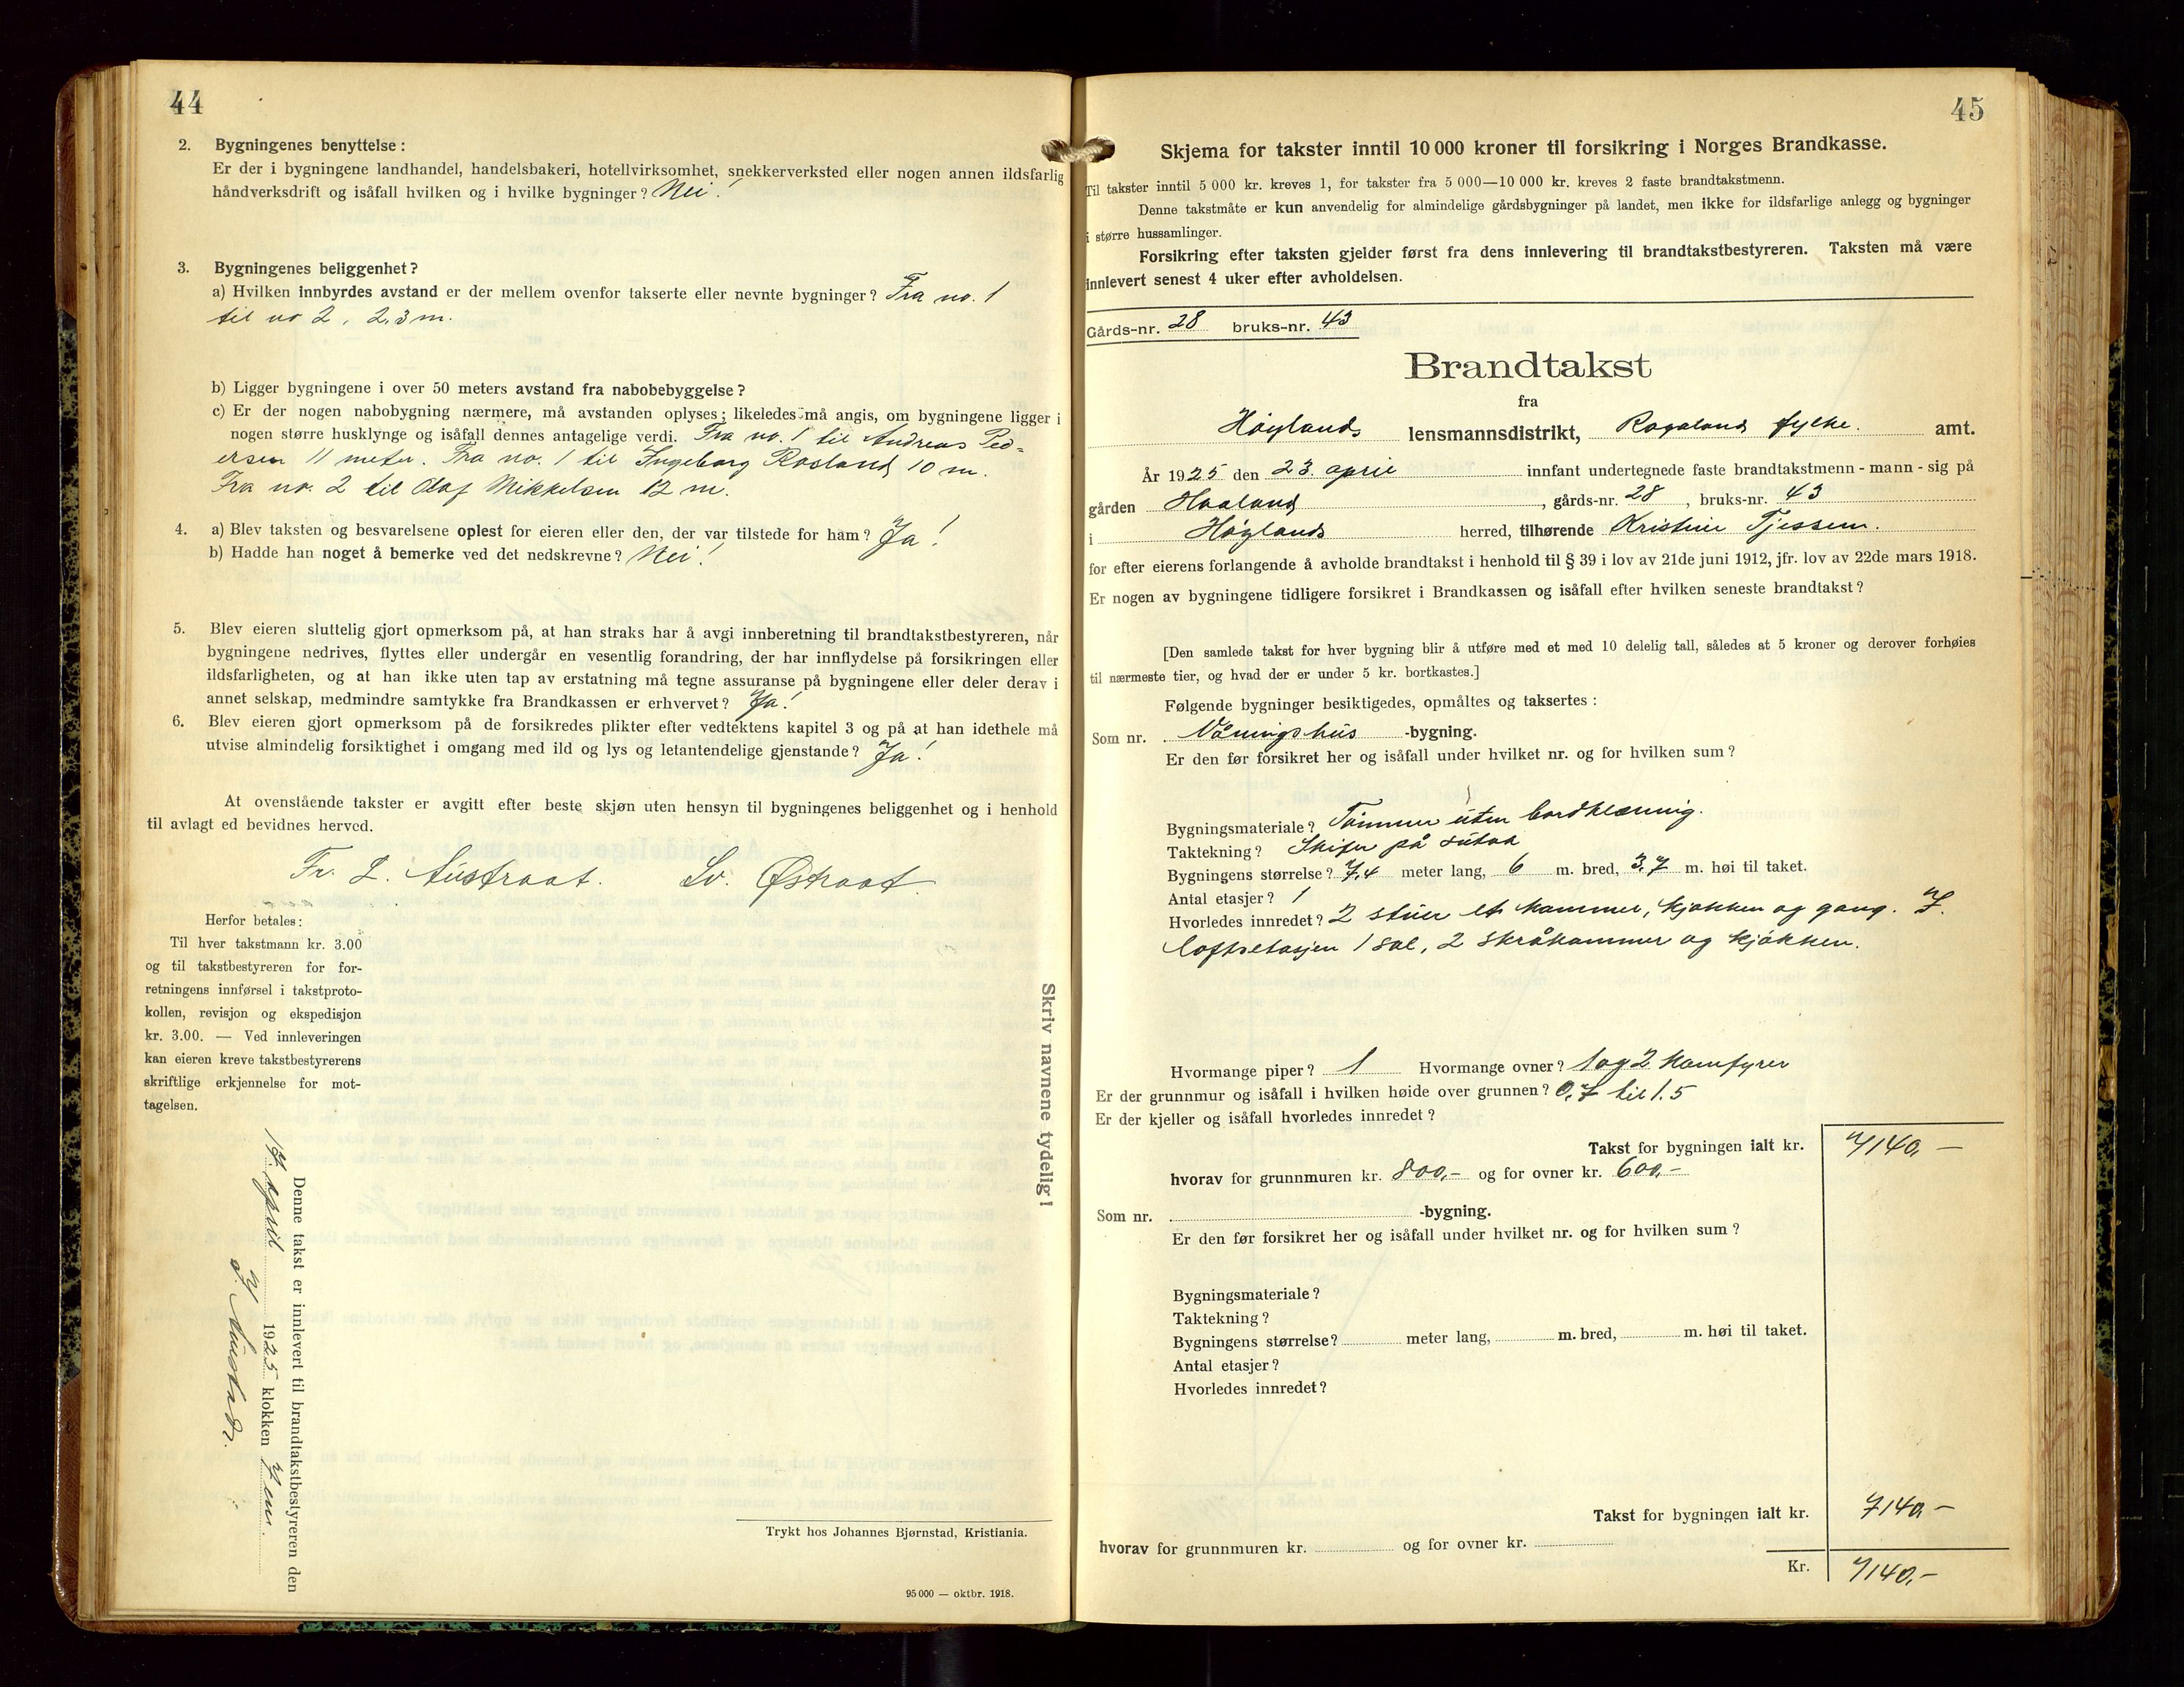 44
2. Bygningenes benyttelse:
Er der i bygningene landhandel, handelsbakeri, hotellvirksomhet, snekkerverksted eller nogen annen ildsfarlig
håndverksdrift og isåfall hvilken og i hvilke bygninger? Nei!
3. Bygningenes beliggenhet?
a) Hvilken innbyrdes avstand er der mellem ovenfor takserte eller nevnte bygninger? Fra no. 1
til no 2, 2,3 m.
b) Ligger bygningene i over 50 meters avstand fra nabobebyggelse?
c) Er der nogen nabobygning nærmere, må avstanden oplyses; likeledes må angis, om bygningene ligger i
nogen større husklynge og isåfall dennes antagelige verdi. Fra no. 1 til Andreas Ped-
ersen 11 meter. Fra no. 1 til Ingeborg Rosland 10 m.
Fra no. 2 til Olaf Mikkelsen 12 m.
4. a) Blev taksten og besvarelsene oplest for eieren eller den, der var tilstede for ham? Ja!
b) Hadde han noget å bemerke ved det nedskrevne? Nei!
5. Blev eieren sluttelig gjort opmerksom på, at han straks har å avgi innberetning til brandtakstbestyreren, når
bygningene nedrives, flyttes eller undergår en vesentlig forandring, der har innflydelse på forsikringen eller
ildsfarligheten, og at han ikke uten tap av erstatning må tegne assuranse på bygningene eller deler derav i
annet selskap, medmindre samtykke fra Brandkassen er erhvervet? Ja!
6. Blev eieren gjort opmerksom på de forsikredes plikter efter vedtektens kapitel 3 og på at han idethele må
utvise almindelig forsiktighet i omgang med ild og lys og letantendelige gjenstande? Ja!
At ovenstående takster er avgitt efter beste skjøn uten hensyn til bygningenes beliggenhet og i henhold
til avlagt ed bevidnes herved.
Fr. L. Austraat. Sv. Østraat
Herfor betales:
Til hver takstmann kr. 3.00
og til takstbestyreren for for-
retningens innførsel i takstproto-
kollen, revisjon og ekspedisjon
kr. 3.00. — Ved innleveringen
kan eieren kreve takstbestyrerens
skriftlige erkjennelse for mot-
tagelsen.
Skriv navnene tydelig!
Denne takst er innlevert til brandtakstbestyreren den
17. april 1925 klokken 7 em.
Trykt hos Johannes Bjørnstad, Kristiania.
95 000 — oktbr. 1918.
45
Skjema for takster inntil 10 000 kroner til forsikring i Norges Brandkasse.
Til takster inntil 5 000 kr. kreves 1, for takster fra 5 000—10 000 kr. kreves 2 faste brandtakstmenn.
Denne takstmåte er kun anvendelig for almindelige gårdsbygninger på landet, men ikke for ildsfarlige anlegg og bygninger
i større hussamlinger.
Forsikring efter taksten gjelder først fra dens innlevering til brandtakstbestyreren. Taksten må være
innlevert senest 4 uker efter avholdelsen.
Gårds-nr. 28 bruks-nr. 43
Brandtakst
fra
Høylands lensmannsdistrikt, Rogaland fylke. amt.
År 1925 den 23. april innfant undertegnede faste brandtakstmenn - mann - sig på
gården Haaland, gårds-nr. 28, bruks-nr. 43
i Høylands herred, tilhørende Kristine Tjessem.
for efter eierens forlangende å avholde brandtakst i henhold til § 39 i lov av 21de juni 1912, jfr. lov av 22de mars 1918.
Er nogen av bygningene tidligere forsikret i Brandkassen og isåfall efter hvilken seneste brandtakst?
[Den samlede takst for hver bygning blir å utføre med et med 10 delelig tall, således at 5 kroner og derover forhøies
til nærmeste tier, og hvad der er under 5 kr. bortkastes.]
Følgende bygninger besiktigedes, opmåltes og taksertes:
Som nr. Våningshus -bygning.
Er den før forsikret her og isåfall under hvilket nr. og for hvilken sum?
Bygningsmateriale? Tømmer uten bordklædning.
Taktekning? Skifer på sutak
Bygningens størrelse? 7,4 meter lang, 6 m. bred, 3,7 m. høi til taket.
Antal etasjer? 1
Hvorledes innredet? 2 stuer et kammer, kjøkken og gang. I.
loftsetasjen 1 sal, 2 skråkammer og kjøkken.
Hvormange piper? 1 Hvormange ovner? 1 og 2 komfyrer
Er der grunnmur og isåfall i hvilken høide over grunnen? 0,7 til 1.5
Er der kjeller og isåfall hvorledes innredet?
Takst for bygningen ialt kr. 7140,—
hvorav for grunnmuren kr. 800,- og for ovner kr. 600,-
Som nr. -bygning.
Er den før forsikret her og isåfall under hvilket nr. og for hvilken sum?
Bygningsmateriale?
Taktekning?
Bygningens størrelse? meter lang, m. bred, m. høi til taket.
Antal etasjer?
Hvorledes innredet?
Takst for bygningen ialt kr. 7140,-
hvorav for grunnmuren kr. og for ovner kr.
Kr. 7140,-